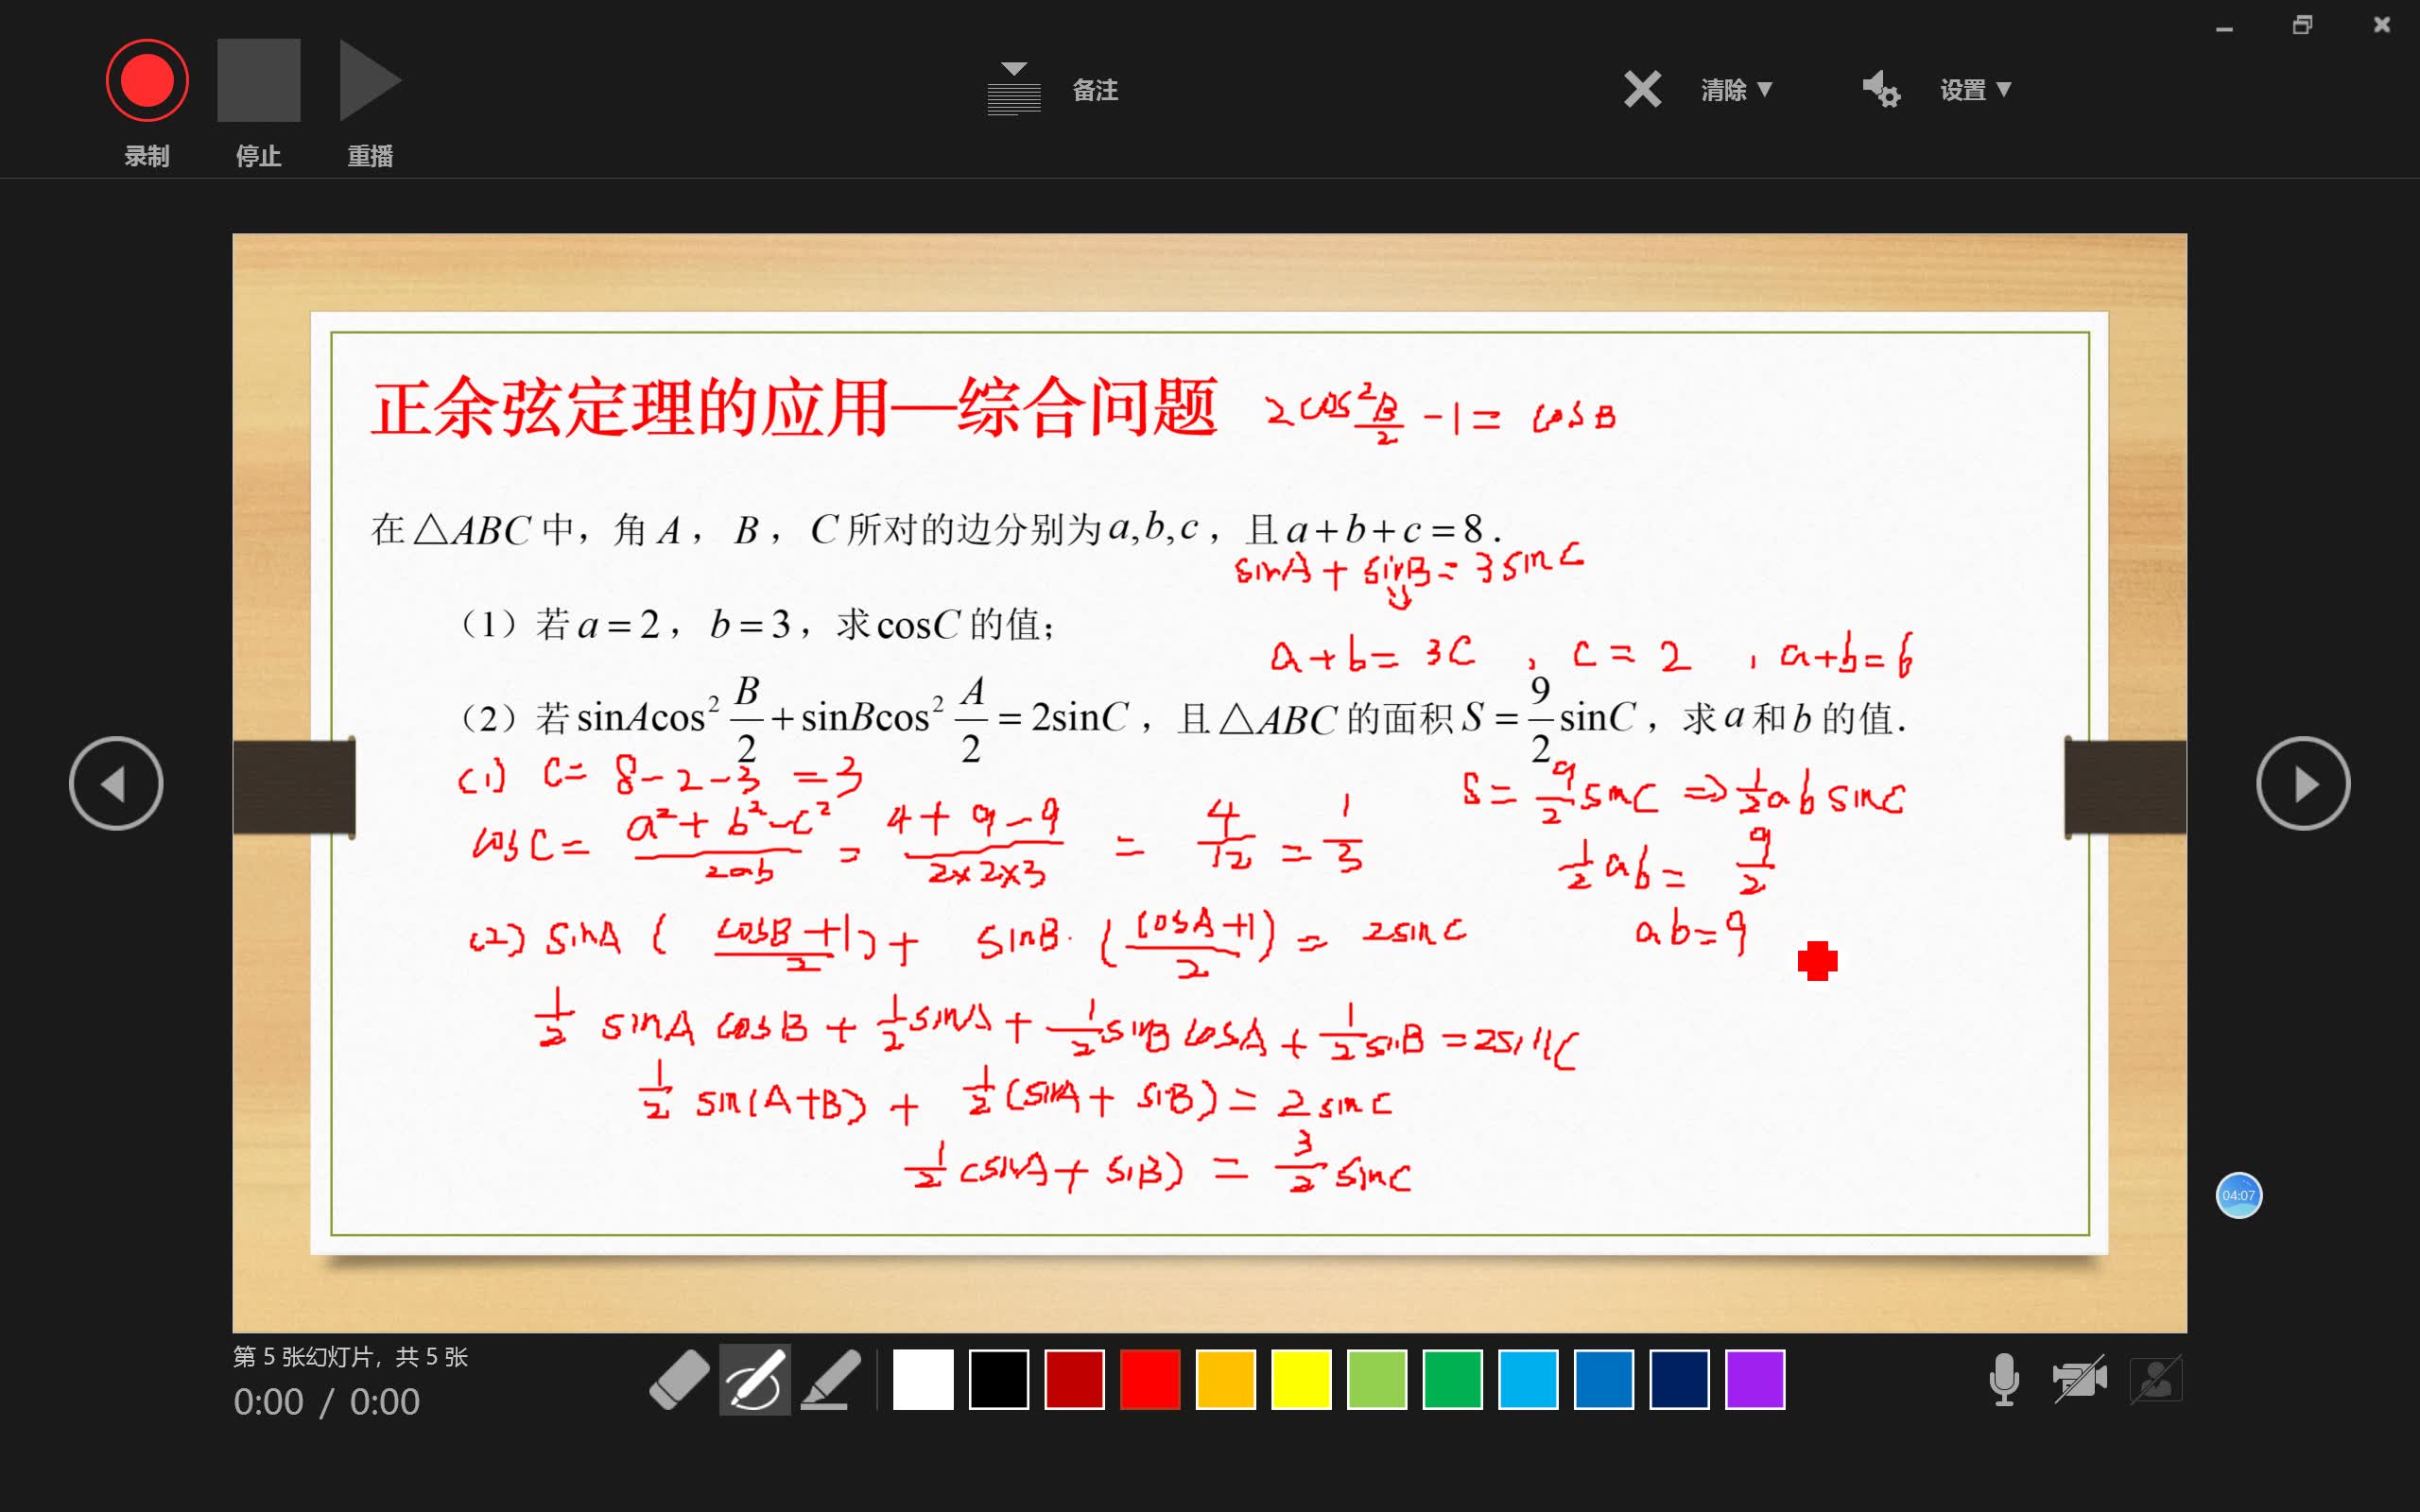 录制 停止 重播 备注 清除 设置
正余弦定理的应用—综合问题 2cos²B/2 -1= cosB
在△ABC中，角A，B，C所对的边分别为a,b,c，且a+b+c=8.
sinA+sinB=3sinC
（1）若a=2，b=3，求cosC的值；
a+b=3c , c=2 , a+b=6
（2）若sinAcos² B/2 +sinBcos² A/2 =2sinC，且△ABC的面积S= 9/2 sinC，求a和b的值.
(1) c= 8-2-3 =3
S= 9/2 sinC ⇒ 1/2 ab sinC
cosC= (a²+b²-c²)/2ab = (4+9-9)/(2×2×3) = 4/12 = 1/3
1/2 ab= 9/2
(2) sinA ( (cosB+1)/2 )+ sinB· ( (cosA+1)/2 ) = 2sinC
ab=9
1/2 sinA cosB + 1/2 sinA + 1/2 sinB cosA + 1/2 sinB =2sinC
1/2 sin(A+B) + 1/2 (sinA+ sinB)= 2sinC
1/2 (sinA+ sinB) = 3/2 sinC
04:07
第 5 张幻灯片，共 5 张
0:00 / 0:00